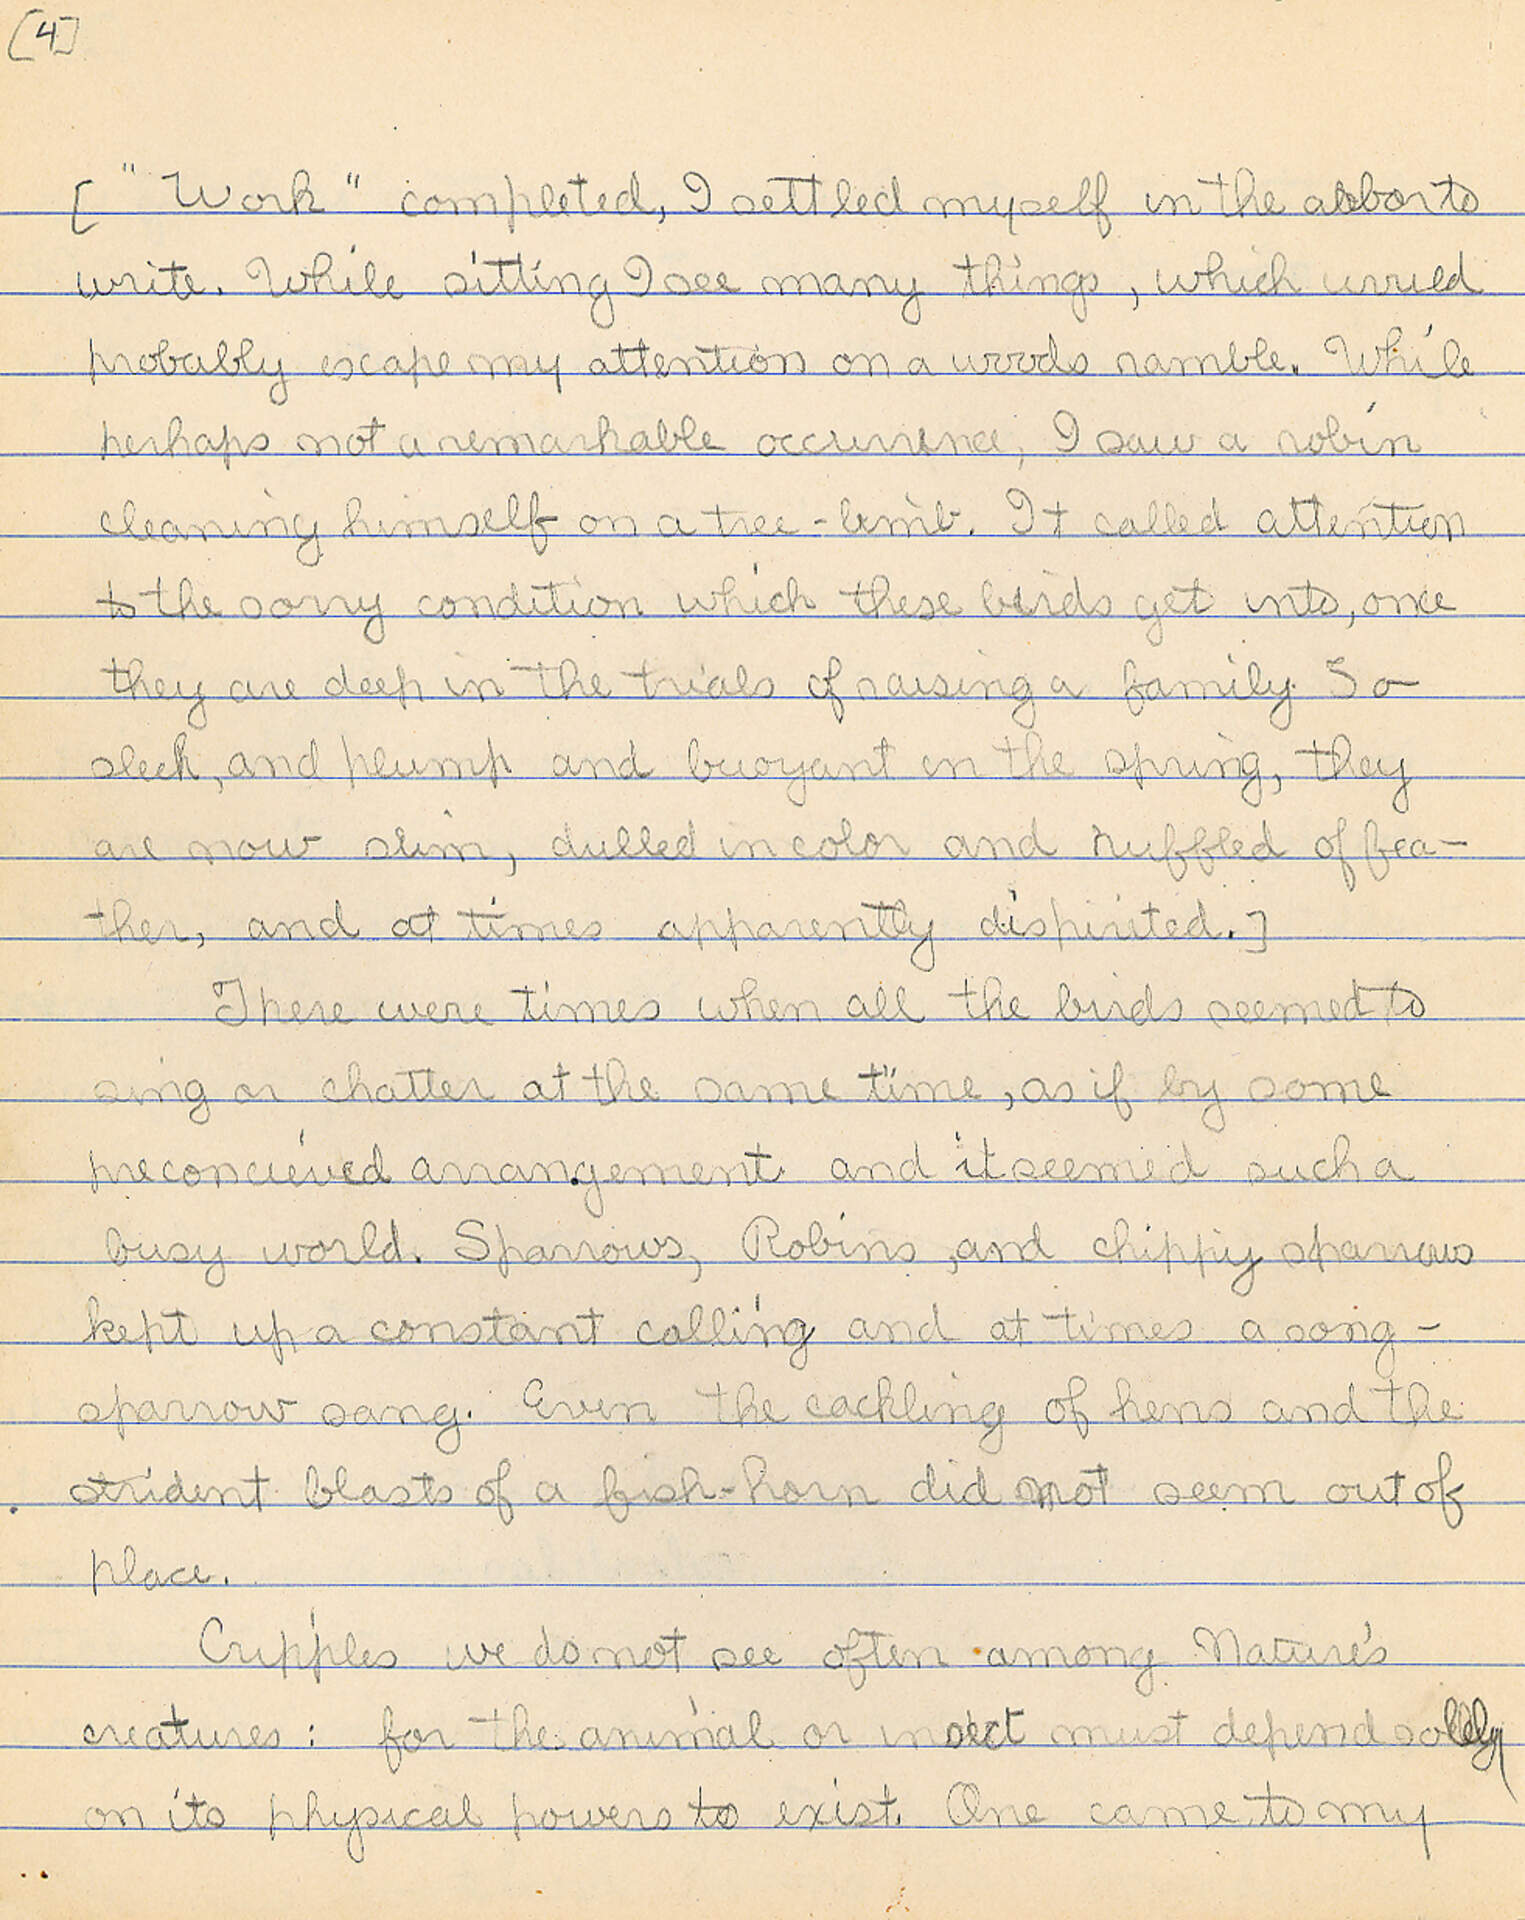 [4]
[ "Work" completed, I settled myself in the abbor to
write. While sitting I see many things, which would
probably escape my attention on a woods ramble. While
perhaps not a remarkable occurrence, I saw a robin
cleaning himself on a tree-limb. It called attention
to the sorry condition which these birds get into, once
they are deep in the trials of raising a family. So
sleek, and plump and buoyant in the spring, they
are now slim, dulled in color and ruffled of fea-
ther, and at times apparently dispirited.]
There were times when all the birds seemed to
sing or chatter at the same time, as if by some
preconcieved arrangement and it seemed such a
busy world. Sparrows, Robins, and chippiy sparrows
kept up a constant calling and at times a song-
sparrow sang. Even the cackling of hens and the
strident blasts of a fish-horn did not seem out of
place.
Cripples we do not see often among Nature's
creatures: for the animal or insect must depend solely
on its physical powers to exist. One came to my